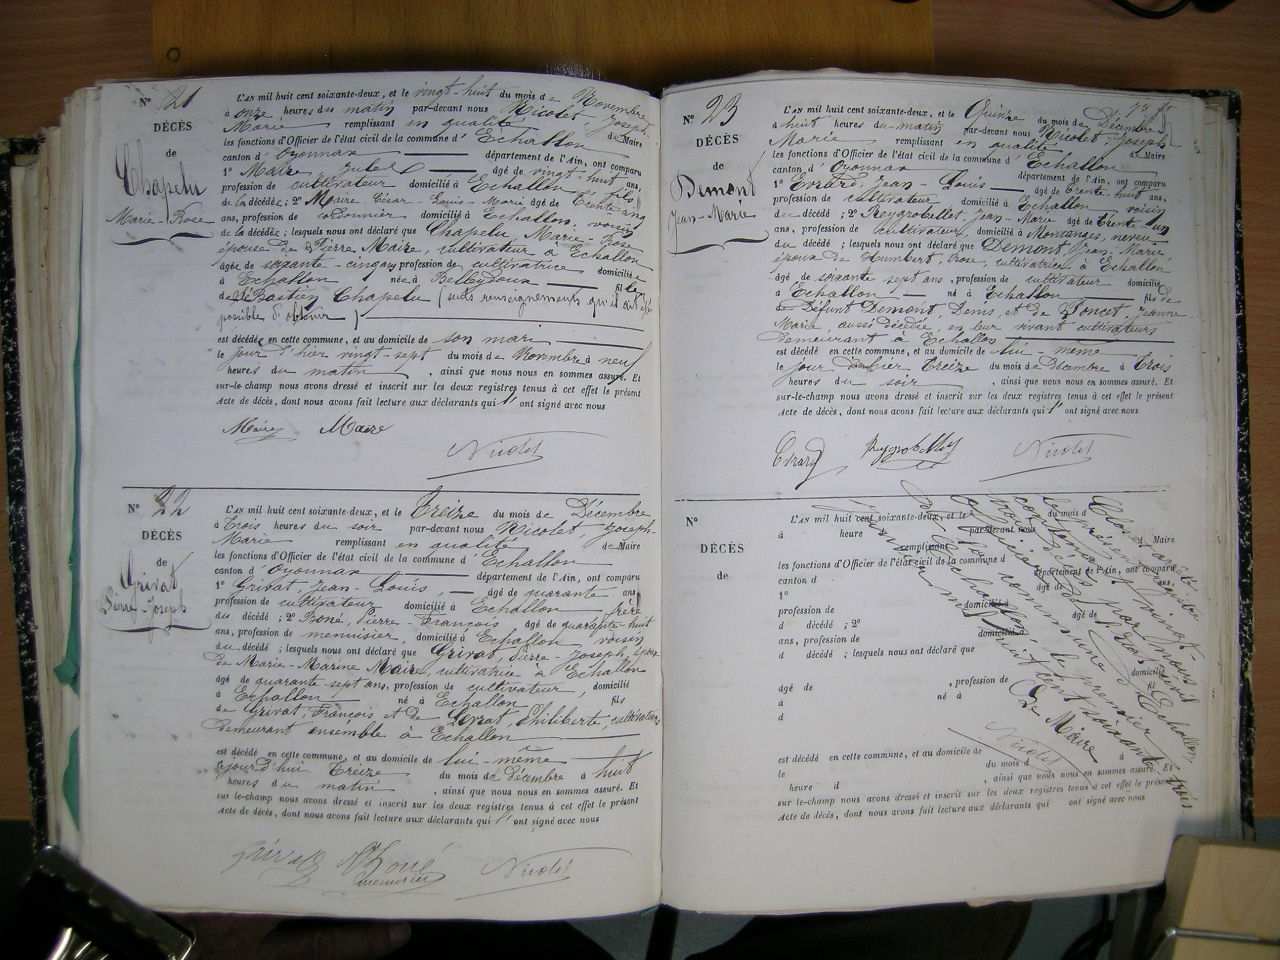 N° 21
DÉCÈS
de
Chapelu
Marie-Rose
L'AN mil huit cent soixante-deux, et le vingt-huit du mois de Novembre
à onze heures du matin par-devant nous Nicolet, Joseph-
Marie remplissant en qualité de Maire
les fonctions d'Officier de l'état civil de la commune d'Echallon
canton d'Oyonnax département de l'Ain, ont comparu
1° Maire, Jules âgé de vingt-huit ans,
profession de cultivateur domicilié à Echallon fils
de la décédée ; 2° Maire César-Louis-Marie âgé de trente cinq
ans, profession de cordonnier domicilié à Echallon voisin
de la décédée ; lesquels nous ont déclaré que Chapelu Marie-Rose
épouse de Pierre Maire, cultivateur à Echallon
âgée de soixante-cinq ans, profession de cultivatrice domiciliée
à Echallon née à Belleydoux fille
de Sébastien Chapelu (seuls renseignements qu'il ait été
possible d'obtenir)
est décédée en cette commune, et au domicile de son mari
le jour d'hier vingt-sept du mois de Novembre à neuf
heures du matin, ainsi que nous nous en sommes assuré. Et
sur-le-champ nous avons dressé et inscrit sur les deux registres tenus à cet effet le présent
Acte de décès, dont nous avons fait lecture aux déclarants qui l'ont signé avec nous
Maire Maire
Nicolet
N° 22
DÉCÈS
de
Grivat
Pierre-Joseph
L'AN mil huit cent soixante-deux, et le Treize du mois de Décembre
à trois heures du soir par-devant nous Nicolet, Joseph-
Marie remplissant en qualité de Maire
les fonctions d'Officier de l'état civil de la commune d'Echallon
canton d'Oyonnax département de l'Ain, ont comparu
1° Grivat, Jean-Louis, âgé de quarante ans,
profession de cultivateur domicilié à Echallon frère
du décédé ; 2° Boné, Pierre-François âgé de quarante-huit
ans, profession de menuisier, domicilié à Echallon voisin
du décédé ; lesquels nous ont déclaré que Grivat, Pierre-Joseph, époux
de Marie-Marine Maire, cultivatrice à Echallon
âgé de quarante-sept ans, profession de cultivateur, domicilié
à Echallon né à Echallon fils
de Grivat, François et de Grivat, Philiberte, cultivateurs
demeurant ensemble à Echallon
est décédé en cette commune, et au domicile de lui-même
aujourd'hui Treize du mois de Décembre à huit
heures du matin, ainsi que nous nous en sommes assuré. Et
sur-le-champ nous avons dressé et inscrit sur les deux registres tenus à cet effet le présent
Acte de décès, dont nous avons fait lecture aux déclarants qui l'ont signé avec nous
Nicolet
N° 23
DÉCÈS
de
Démont
Jean-Marie
L'AN mil huit cent soixante-deux, et le Quinze du mois de Décembre
à huit heures du matin par-devant nous Nicolet, Joseph-
Marie remplissant en qualité de Maire
les fonctions d'Officier de l'état civil de la commune d'Echallon
canton d'Oyonnax département de l'Ain, ont comparu
1° Evrard, Jean-Louis âgé de trente-huit ans,
profession de cultivateur domicilié à Echallon voisin
du décédé ; 2° Reygrobellet, Jean-Marie âgé de trente un
ans, profession de cultivateur, domicilié à Montanges, neveu
du décédé ; lesquels nous ont déclaré que Démont, Jean-Marie
époux de Humbert, Rose, cultivatrice à Echallon
âgé de soixante sept ans, profession de cultivateur domicilié
à Echallon né à Echallon fils de
de Défunt Démont, Denis et de Poncet, Jeanne
Marie, aussi décédée, en leur vivant cultivateurs
demeurant à Echallon
est décédé en cette commune, et au domicile de lui-même
le jour d'hier treize du mois de Décembre à trois
heures du soir, ainsi que nous nous en sommes assuré. Et
sur-le-champ nous avons dressé et inscrit sur les deux registres tenus à cet effet le présent
Acte de décès, dont nous avons fait lecture aux déclarants qui l'ont signé avec nous
Evrard Reygrobellet Nicolet
N°
DÉCÈS
de
L'AN mil huit cent soixante-deux, et le du mois d
à heure par-devant nous
remplissant d Maire
les fonctions d'Officier de l'état civil de la commune d
canton d département de l'Ain, ont comparu
1° âgé de ans,
profession de domicilié à
d décédé ; 2° âgé de
ans, profession de domicilié
d décédé ; lesquels nous ont déclaré que
âgé de , profession de domicilié
à né à fil
d
est décédé en cette commune, et au domicile de
le du mois d à
heure d , ainsi que nous nous en sommes assuré. Et
sur-le-champ nous avons dressé et inscrit sur les deux registres tenus à cet effet le présent
Acte de décès, dont nous avons fait lecture aux déclarants qui ont signé avec nous
Clos et arrêté
par nous Maire
de la commune d'Echallon
le premier
janvier mil huit cent soixante trois
Le Maire
Nicolet